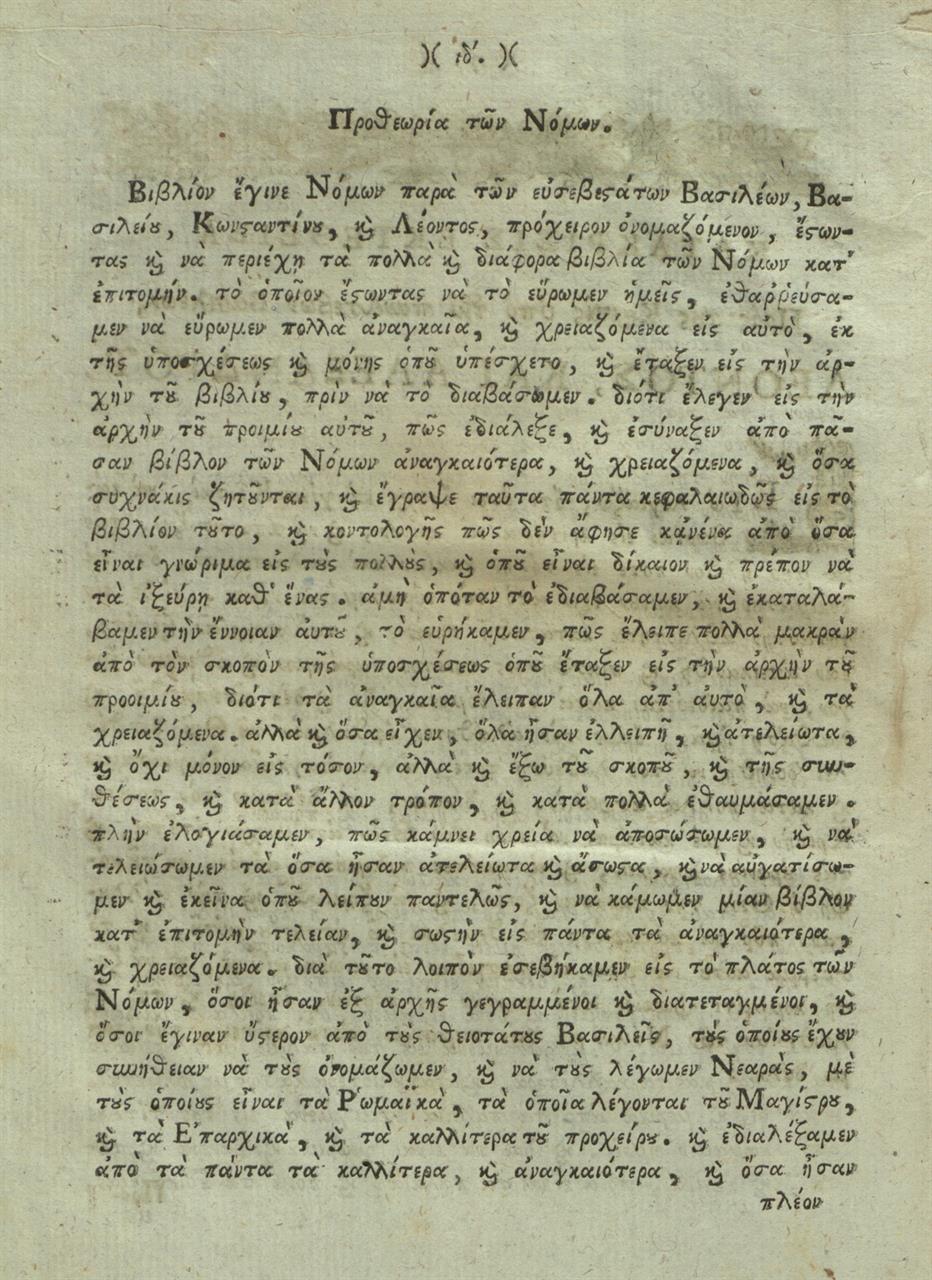 )( ιδ'. )(
Προθεωρία τῶν Νόμων.
Βιβλίον ἔγινε Νόμων παρὰ τῶν εὐσεβεϛάτων Βασιλέων, Βα-
σιλείȣ, Κωνϛαντίνȣ, ϗ̀ Λέοντος, πρόχειρον ὀνομαζόμενον, ἔϛων-
τας ϗ̀ νὰ περιέχῃ τὰ πολλὰ ϗ̀ διάφορα βιβλία τῶν Νόμων κατ'
ἐπιτομήν. τὸ ὁποῖον ἔϛωντας νὰ τὸ εὕρωμεν ἡμεῖς, ἐθαῤῥεύσα-
μεν νὰ εὕρωμεν πολλὰ ἀναγκαῖα, ϗ̀ χρειαζόμενα εἰς αὐτὸ, ἐκ
τῆς ὑποσχέσεως ϗ̀ μόνης ὁπȣ͂ ὑπέσχετο, ϗ̀ ἔταξεν εἰς τὴν ἀρ-
χὴν τȣ͂ βιβλίȣ, πρὶν νὰ τὸ διαβάσωμεν. διότι ἔλεγεν εἰς τὴν
ἀρχὴν τȣ͂ προιμίȣ αὐτȣ͂, πῶς ἐδιάλεξε, ϗ̀ ἐσύναξεν ἀπὸ πᾶ-
σαν βίβλον τῶν Νόμων ἀναγκαιότερα, ϗ̀ χρειαζόμενα, ϗ̀ ὅσα
συχνάκις ζητȣ͂νται, ϗ̀ ἔγραψε ταῦτα πάντα κεφαλαιωδῶς εἰς τὸ
βιβλίον τȣ͂το, ϗ̀ κοντολογῆς πῶς δὲν ἄφησε κᾀνένα ἀπὸ ὅσα
εἶναι γνώριμα εἰς τȣ̀ς πολλȣ̀ς, ϗ̀ ὁπȣ͂ εἶναι δίκαιον ϗ̀ πρέπον νὰ
τὰ ἰξεύρῃ καθ' ἕνας. ἀμὴ ὁπόταν τὸ ἐδιαβάσαμεν, ϗ̀ ἐκαταλά-
βαμεν τὴν ἔννοιαν ἀυτȣ͂, τὸ εὑρήκαμεν, πῶς ἔλειπε πολλὰ μακρὰν
ἀπὸ τὸν σκοπὸν τῆς ὑποσχέσεως ὁπȣ͂ ἔταξεν εἰς τὴν ἀρχὴν τȣ͂
προοιμίȣ, διότι τὰ ἀναγκαῖα ἔλειπαν ὅλα ἀπ' ἀυτὸ, ϗ̀ τὰ
χρειαζόμενα. ἀλλὰ ϗ̀ ὅσα εἶχεν, ὅλα ἦσαν ἐλλειπῆ, ϗ̀ ἀτελείωτα,
ϗ̀ ὄχι μόνον εἰς τόσον, ἀλλὰ ϗ̀ ἔξω τȣ͂ σκοπȣ͂, ϗ̀ τῆς συν-
θέσεως, ϗ̀ κατὰ ἄλλον τρόπον, ϗ̀ κατὰ πολλὰ ἐθαυμάσαμεν.
πλὴν ἐλογιάσαμεν, πῶς κάμνει χρεία νὰ ἀποσώσωμεν, ϗ̀ νὰ
τελειώσωμεν τὰ ὅσα ἦσαν ἀτελείωτα ϗ̀ ἄσωϛα, ϗ̀ νὰ αὐγατίσω-
μεν ϗ̀ ἐκεῖνα ὁπȣ͂ λείπȣν παντελῶς, ϗ̀ νὰ κάμωμεν μίαν βίβλον
κατ' ἐπιτομὴν τελείαν, ϗ̀ σωϛὴν εἰς πάντα τὰ ἀναγκαιότερα,
ϗ̀ χρειαζόμενα. διὰ τȣ͂το λοιπὸν ἐσεβήκαμεν εἰς τὸ πλάτος τῶν
Νόμων, ὅσοι ἦσαν ἐξ ἀρχῆς γεγραμμένοι ϗ̀ διατεταγμένοι, ϗ̀
ὅσοι ἔγιναν ὕϛερον ἀπὸ τȣ̀ς θειοτάτȣς Βασιλεῖς, τȣ̀ς ὁποίȣς ἔχȣν
συνήθειαν νὰ τȣ̀ς ὀνομάζωμεν, ϗ̀ νὰ τȣ̀ς λέγωμεν Νεαρὰς, μὲ
τȣ̀ς ὁποίȣς εἶναι τὰ Ῥωμαϊκὰ, τὰ ὁποῖα λέγονται τȣ͂ Μαγίϛρȣ,
ϗ̀ τὰ Ἐπαρχικὰ, ϗ̀ τὰ καλλίτερα τȣ͂ προχείρȣ. ϗ̀ ἐδιαλέξαμεν
ἀπὸ τὰ πάντα τὰ καλλίτερα, ϗ̀ ἀναγκαιότερα, ϗ̀ ὅσα ἦσαν
πλέον